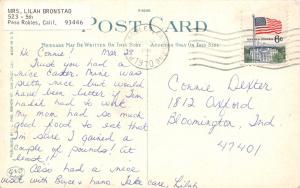 MRS. LILAH BRONSTAD
523 - 5th
Paso Robles, Calif. 93446
POST CARD
Message May Be Written On This Side
Address
Hi Connie! Mar. 28
Trust you had a
nice Easter. Mine was
pretty nice but would
have been better if Jim
hadn't had to work.
My mom had so much
good food to eat that
I'm sure I gained a
couple of pounds! At
least!
Also had a nice
visit with Boyce & Nana. Take care, Lilah
Connie Dexter
1812 Oxford
Bloomington, Ind
47401
6c